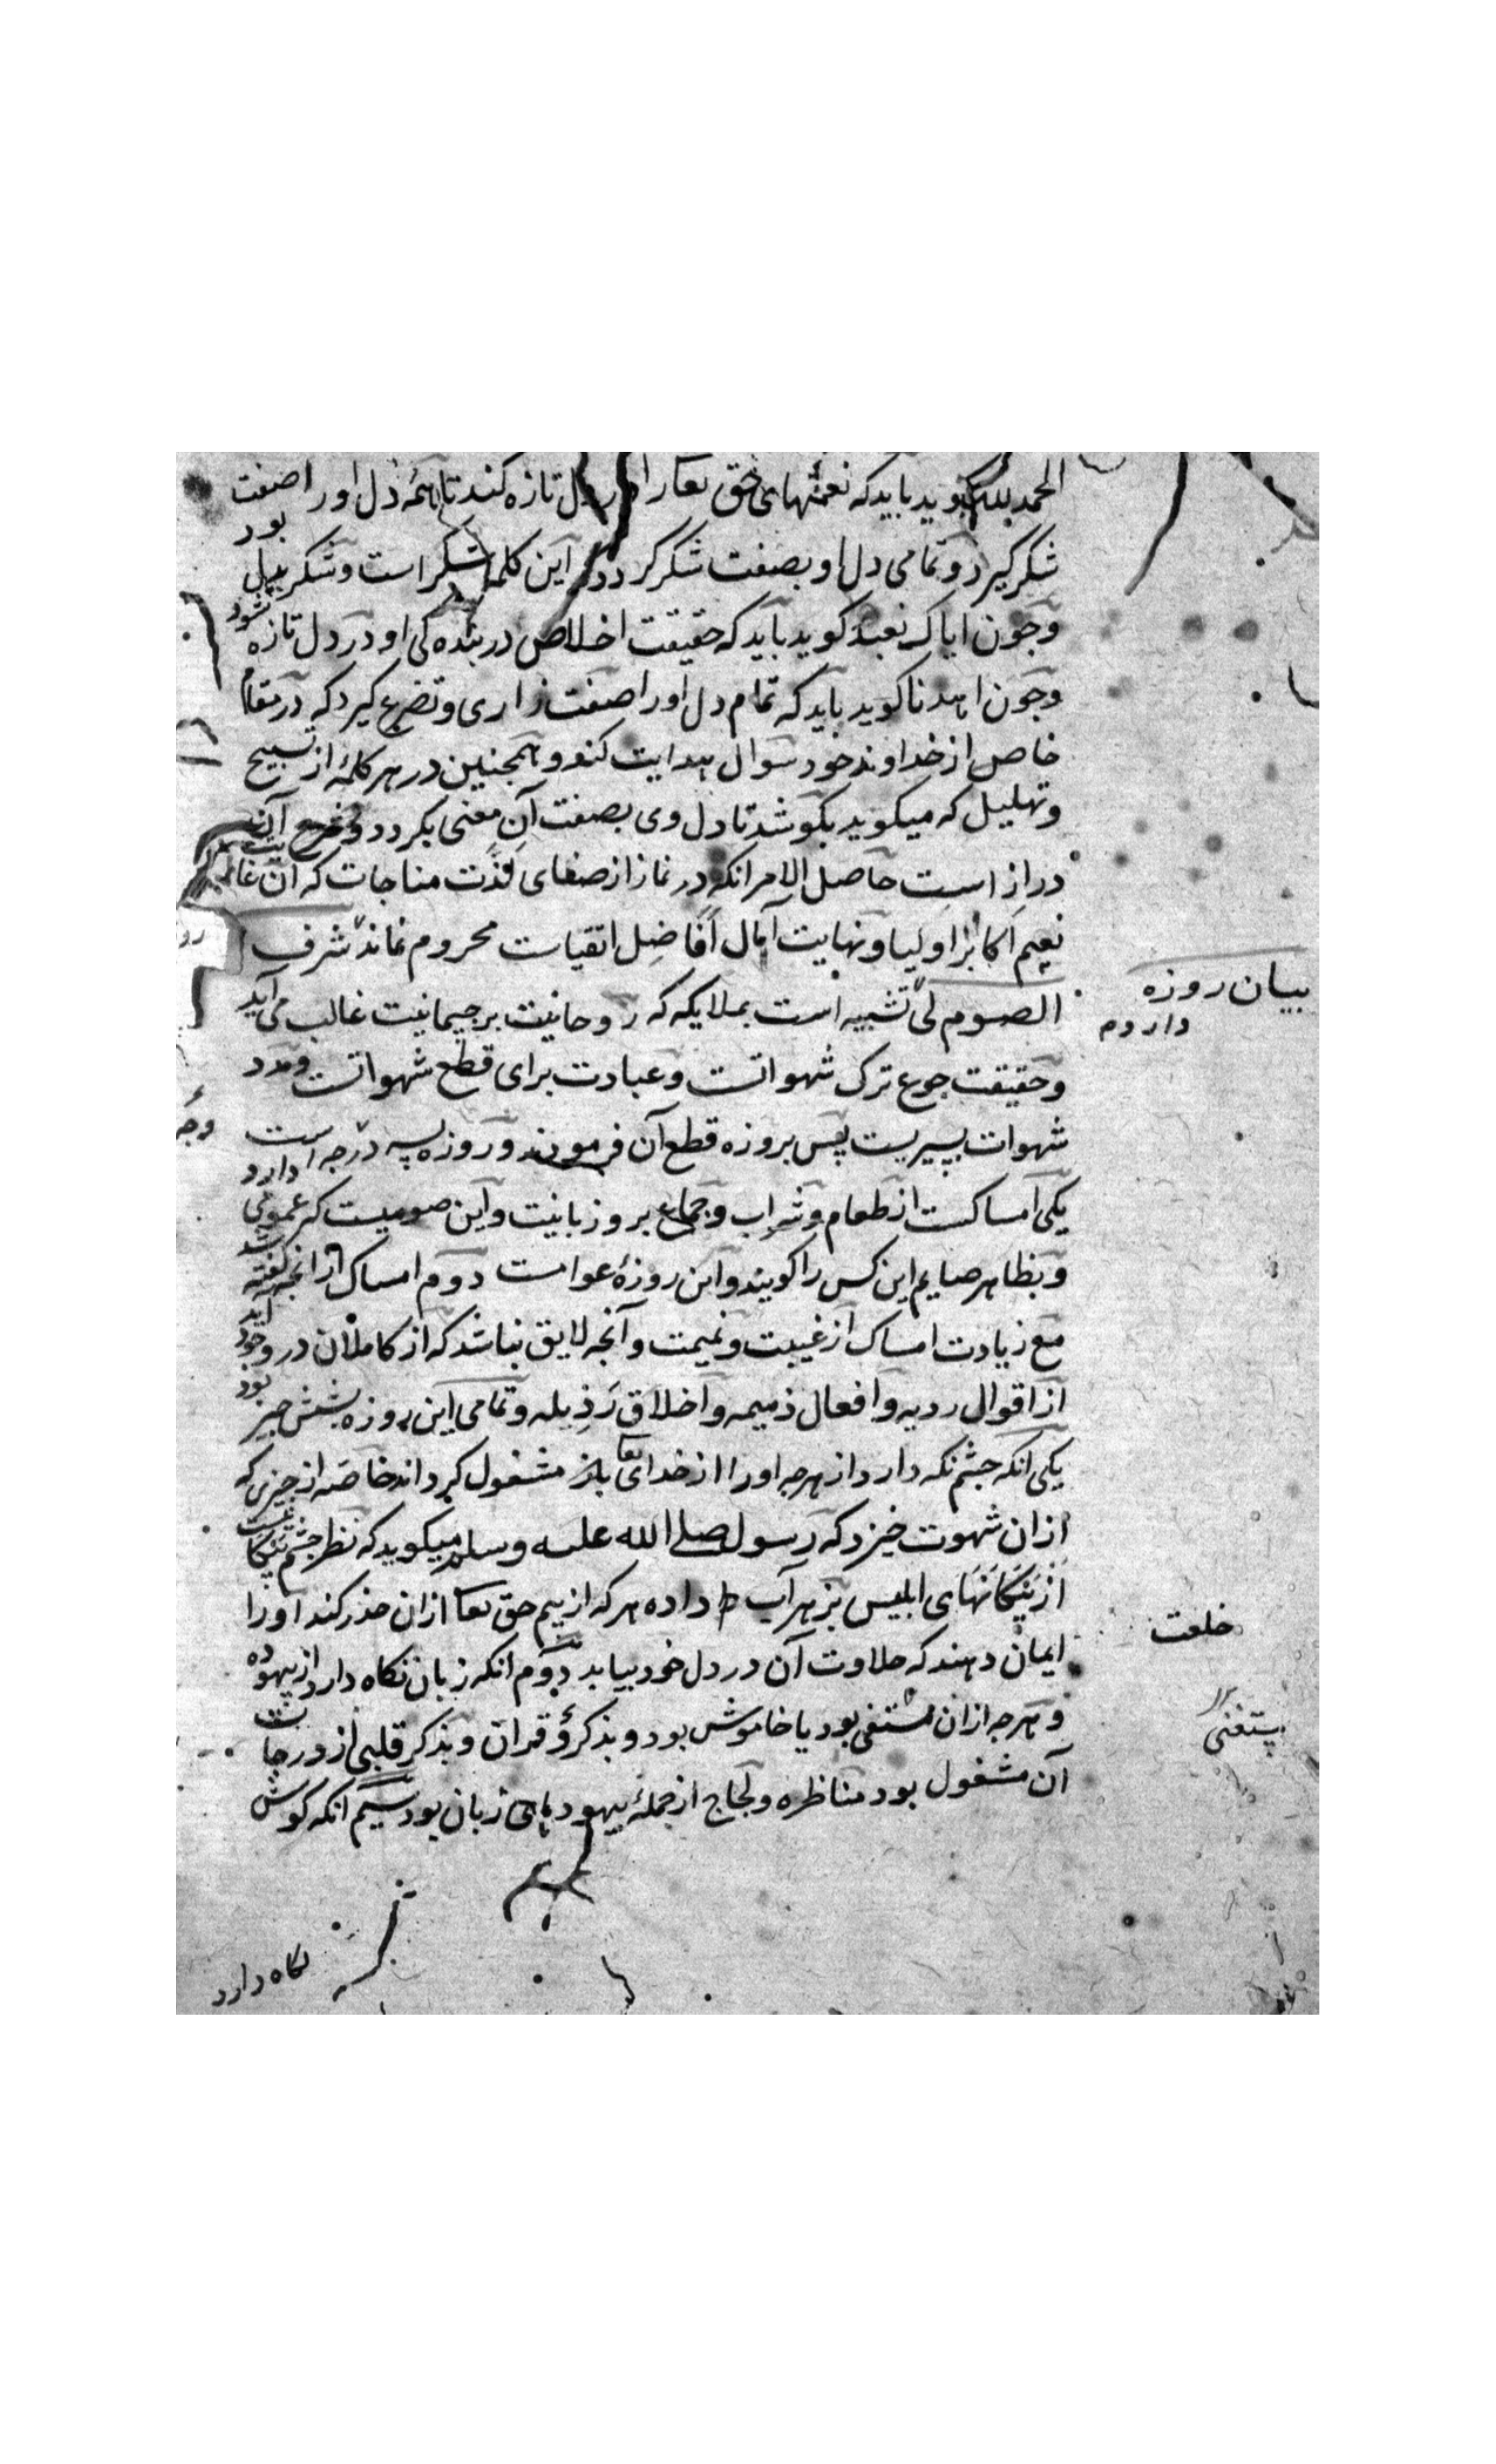 الحمد لله کوید باید که نعمتهای حق تعا را در دل تازه کند تا همه دل او را صفت
شکر کیرد و تمامی دل او بصفت شکر کردد که این کلمه شکر است و شکر بدل بود
وجون ایاک نعبد کوید باید که حقیقت اخلاص در بنده کی او در دل تازه شود
وجون اهدنا کوید باید که تمام دل او را صفت زاری و تضرع کیرد که در مقام
خاص از خداوند خود سوال هدایت کند و همجنین در هر کلمهٔ از تسبیح
وتهلیل که میکوید بکوشد تا دل وی بصفت آن معنی بکردد و شرح آن
دراز است حاصل الامر انکه در نماز از صفای لذت مناجات که آن غایت
نعیم اکابر اولیا و نهایت آمال افاضل اتقیاست محروم نماند شرف
الصوم لی تشبیه است بملایکه که روحانیت بر جسمانیت غالب می آید
وحقیقت جوع ترک شهواتست وعبادت برای قطع شهواتست ومدد
شهوات بسیریست پس بروزه قطع آن فرمودند و روزه سه درجه است دارد
یکی امساکست از طعام و شراب و جماع بروز بانیت واین صومیست که عمومی
وبظاهر صایم این کس را کویند و این روزهٔ عوامست دوم امساک از انجه کفته آید
مع زیادت امساک از غیبت و نمیمت و آنجه لایق نباشد که از کاملان در وجود
از اقوال ردیه و افعال ذمیمه و اخلاق رذیله و تمامی این روزه بشش جیز بود
یکی انکه جشم نکه دارد از هرجه او را از خدای تعا باز مشغول کرداند خاصه از جیزی که
ازان شهوت خیزد که رسول صلی الله علیه وسلم میکوید که نظر جشم پیکانیست
از پیکانهای ابلیس بزهر آب داده هر که از بیم حق تعا ازان حذر کند او را
ایمان دهند که حلاوت آن در دل خود بیابد دوم انکه زبان نکاه دارد از بیهوده
و هرجه ازان مستغنی بود یا خاموش بود و بذکر و قران و بذکر قلبی از درجات
آن مشغول بود مناظره و لجاج از جملهٔ بیهودهای زبان بود سیم انکه کوش
نکاه دارد
بیان روزه
دار دم
خلعت
مستغنی